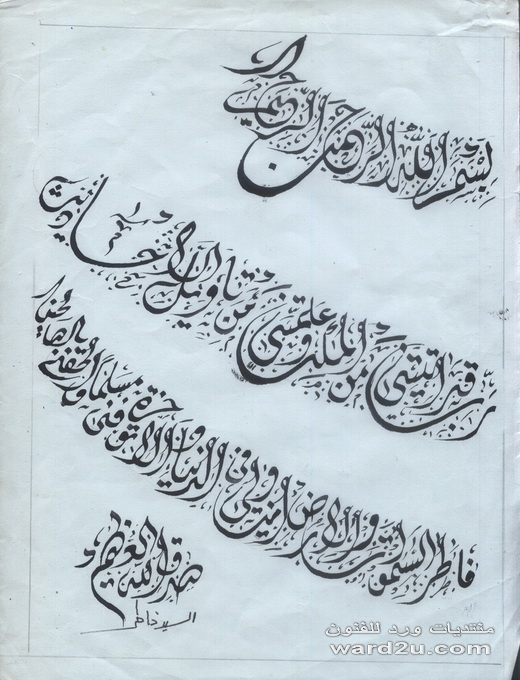 بسم الله الرحمن الرحيم
رب قد آتيتني من الملك وعلمتني من تأويل الأحاديث
فاطر السموات والأرض أنت وليي في الدنيا والآخرة توفني مسلما وألحقني بالصالحين
صدق الله العظيم
منتديات ورد للفنون
ward2u.com